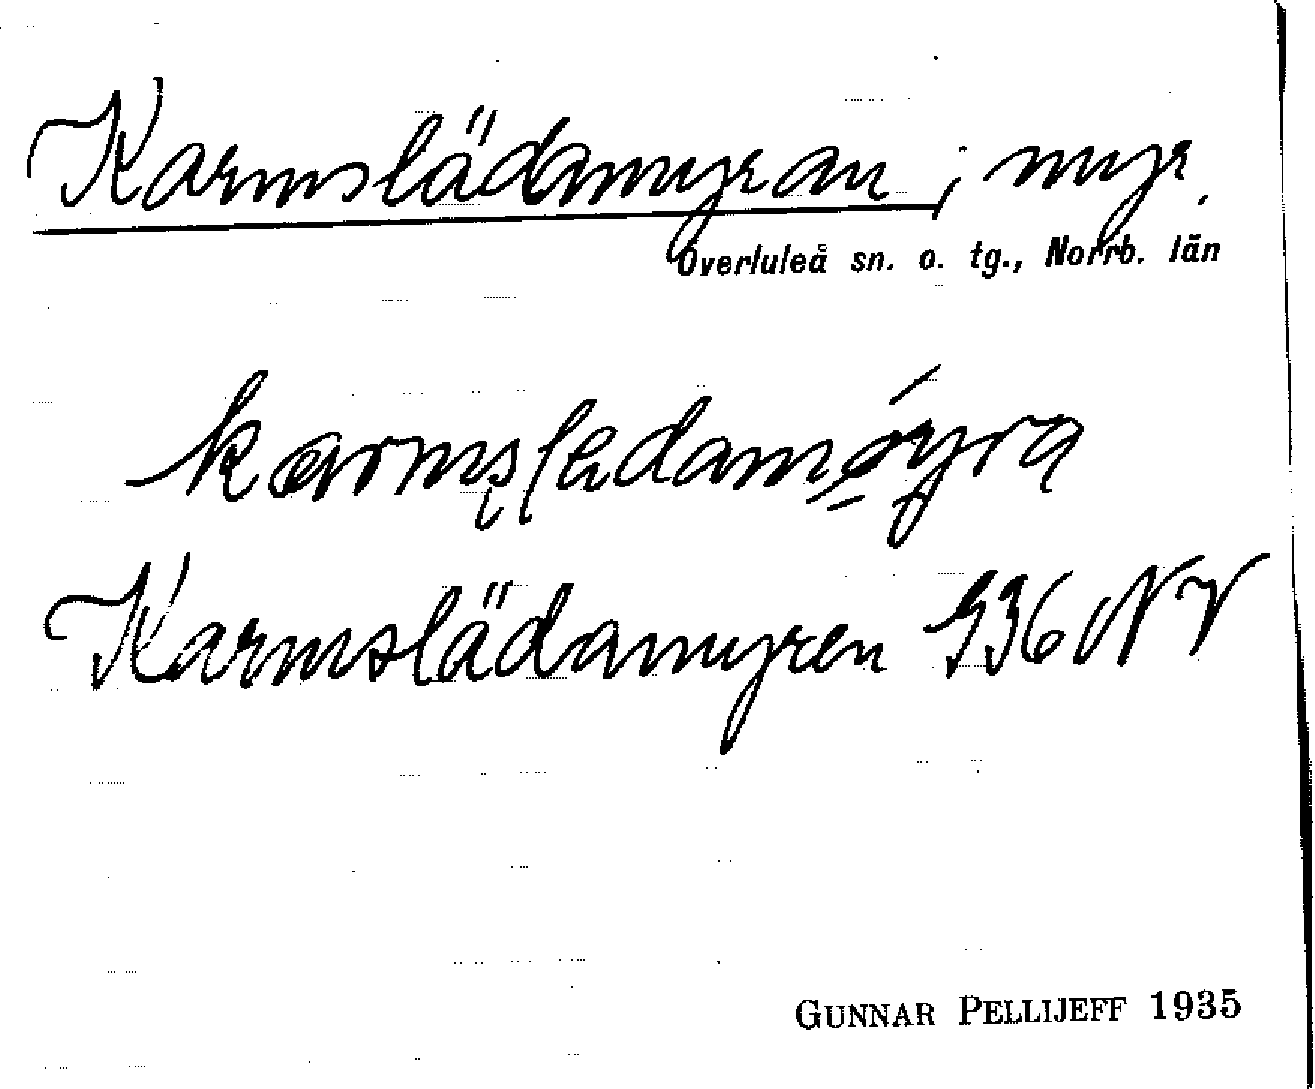 Karmslädamyran; myr.
Överluleå sn. o. tg., Norrb. län
Karmslädamyren 936 NV
GUNNAR PELLIJEFF 1935